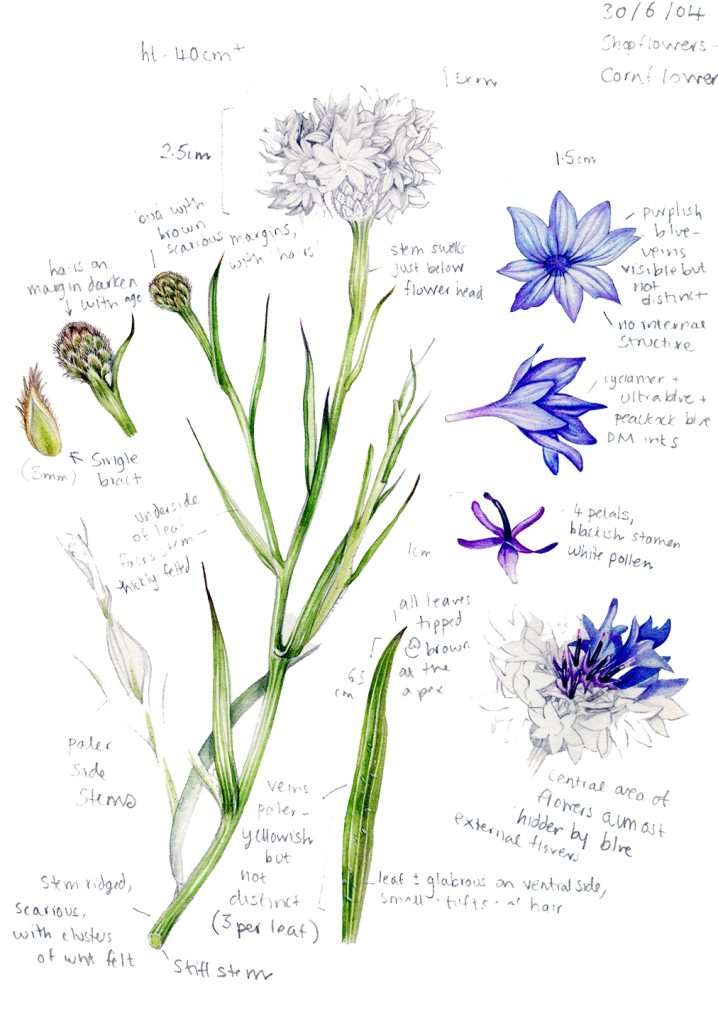 30/6/04
Shopflowers -
Cornflower
ht. 40cm+
5cm
2.5cm
1.5cm
oval with
brown
scarious margins,
with hairs
hairs on
margin darken
with age
stem swells
just below
flowerhead
purplish
blue-
veins
visible but
not
distinct
no internal
structure
cyclamen +
ultra blue +
peackock blue
DM inks
(3mm)
Single
bract
underside
of leaf
faces stem-
thickly felted
4 petals,
blackish stamen
white pollen
1cm
all leaves
tipped
brown
at the
apex
6.5
cm
paler
side
stems
veins
paler-
yellowish
but
not
distinct
(3 per leaf)
central area of
flowers almost
hidden by blue
external flowers
stem ridged,
scarious,
with clusters
of felt
leaf ± glabrous on ventral side,
small tufts of hair
Stiff stem